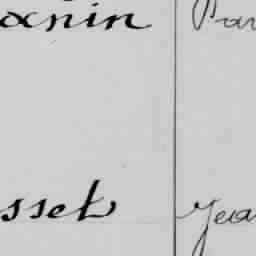 anin Par
sset Jea